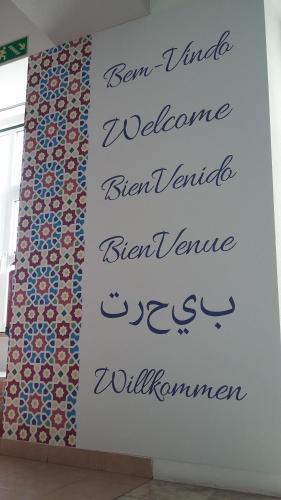 Bem-Vindo
Welcome
BienVenido
BienVenue
بيحرت
Willkommen